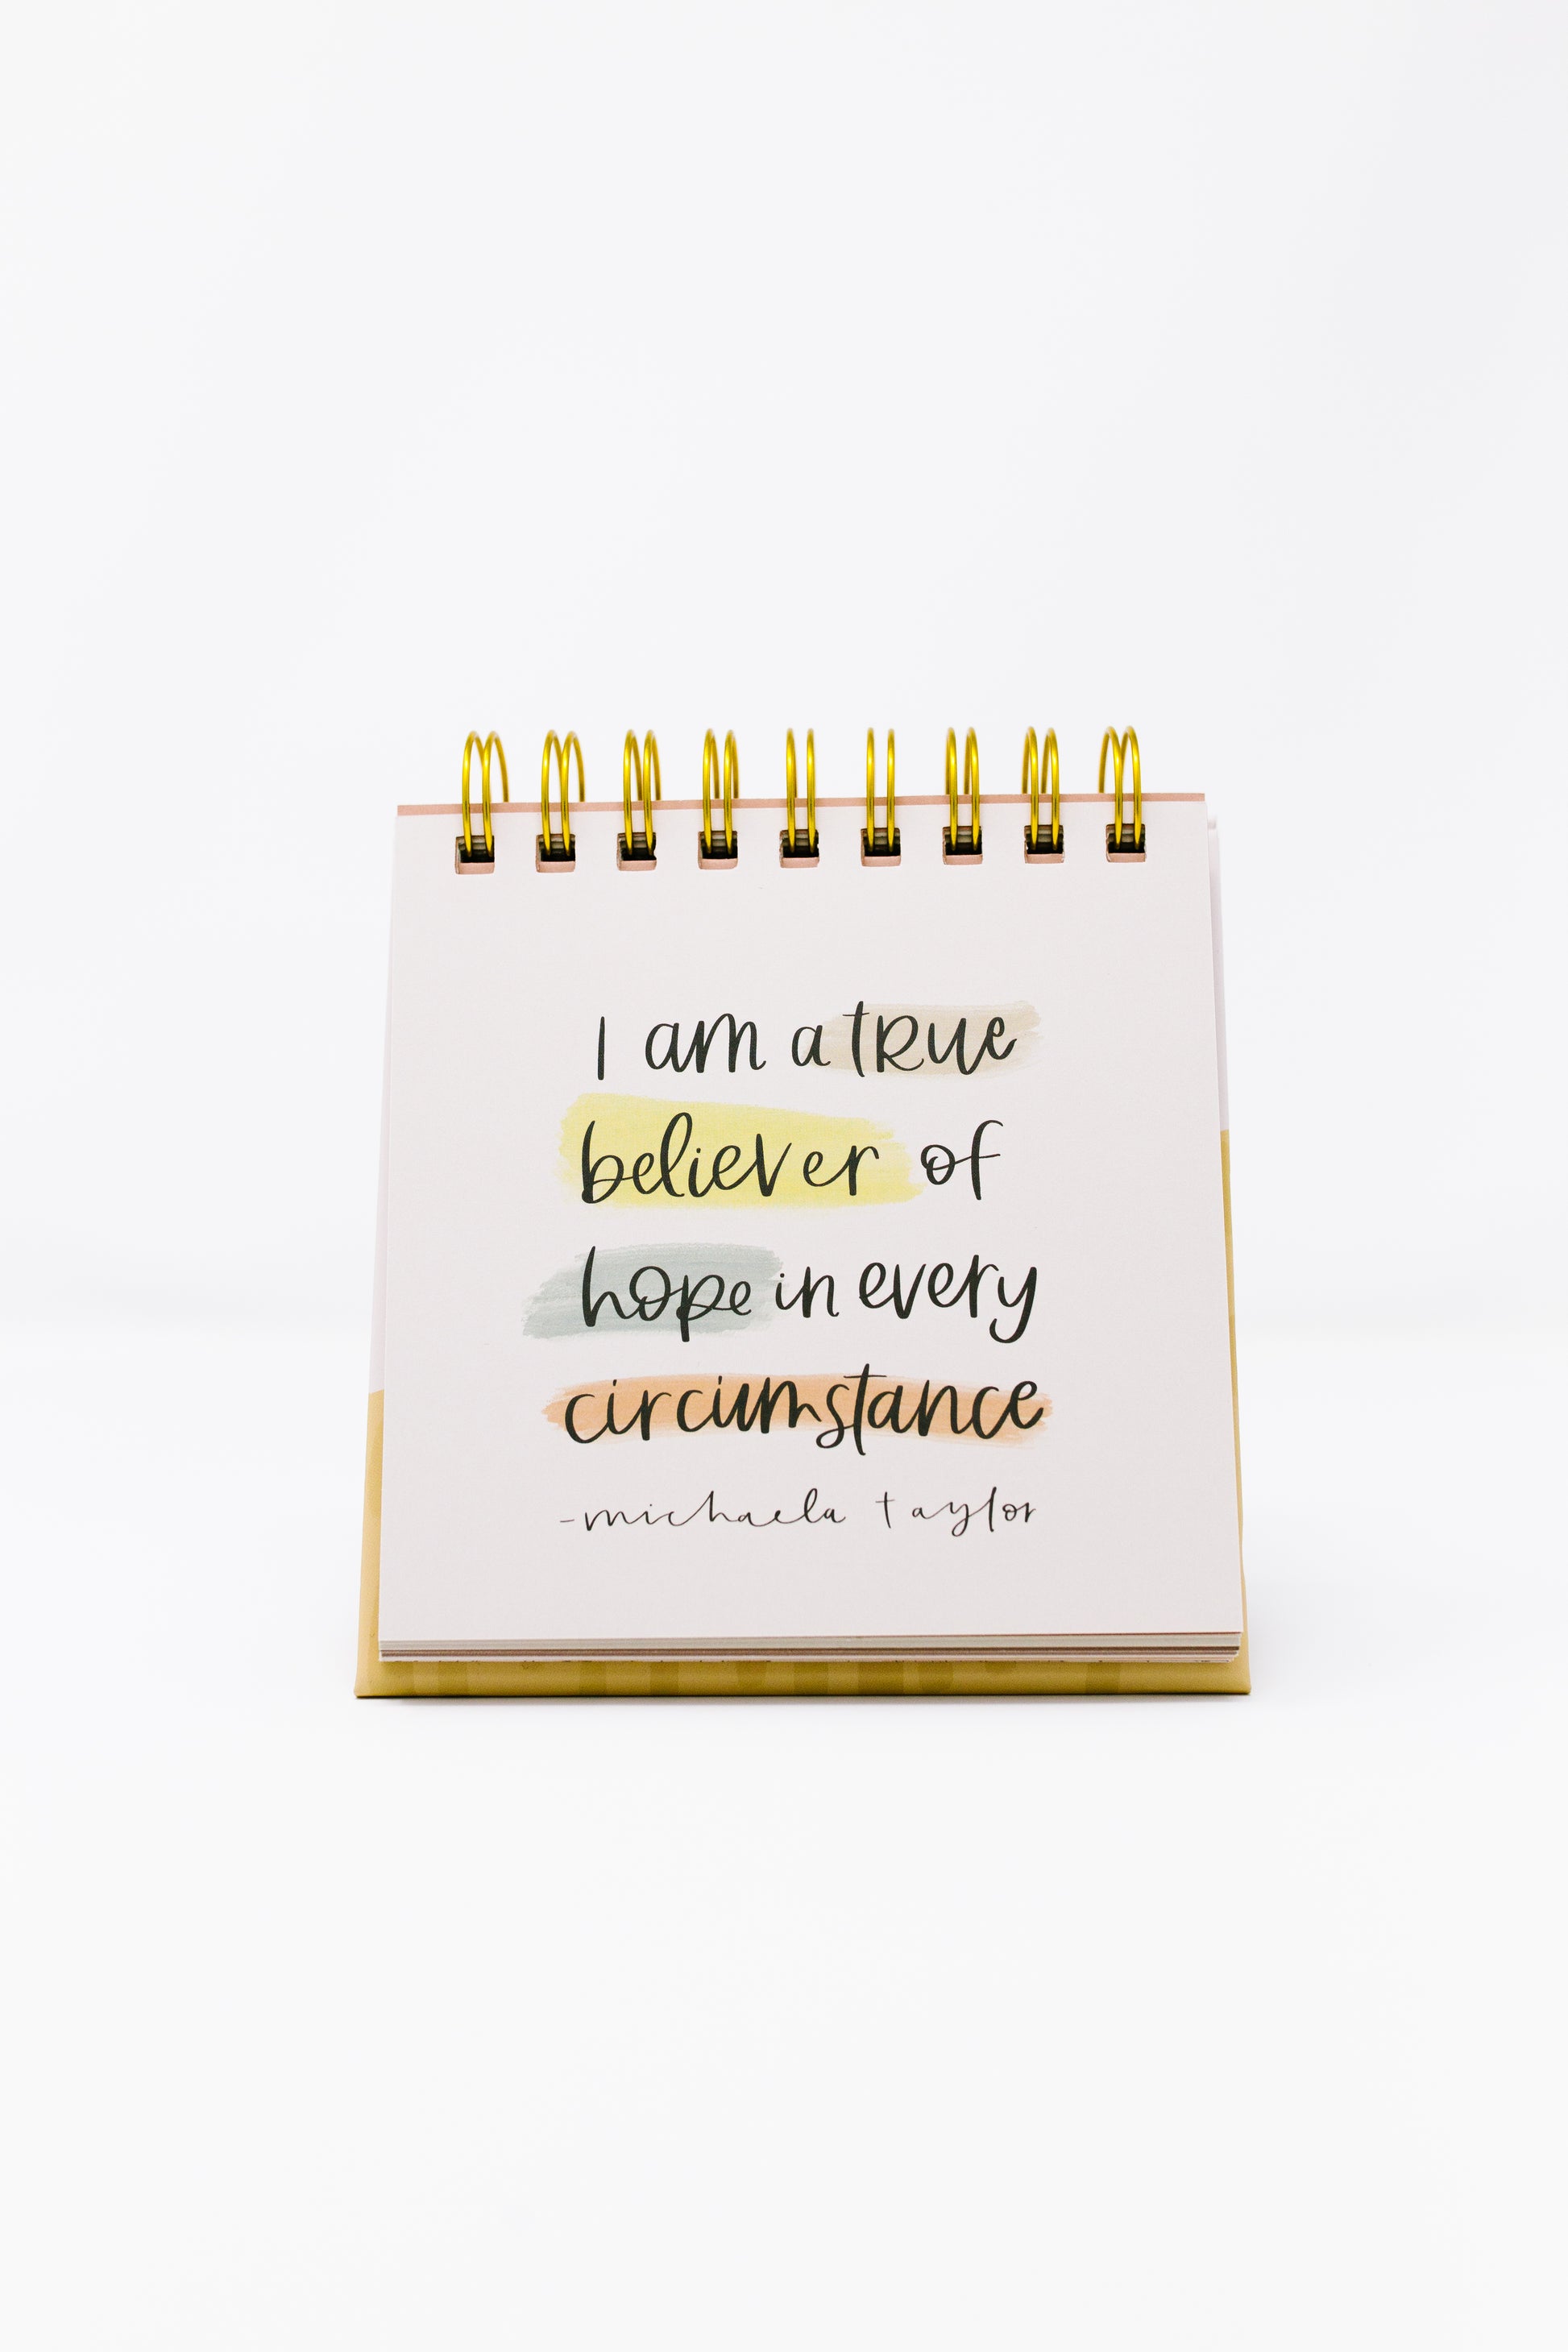 I am a tRue
believer of
hope in every
circumstance
-michaela taylor